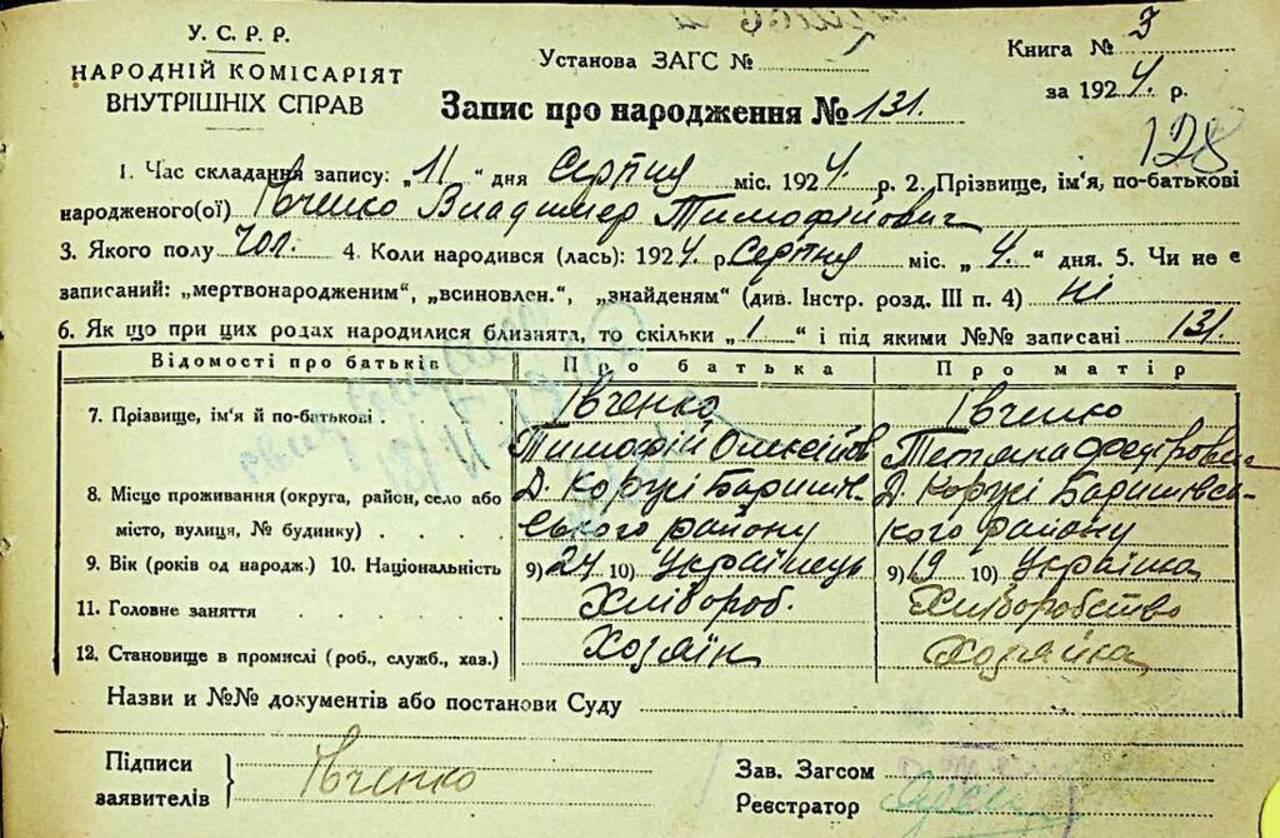 У. С. Р. Р.
НАРОДНІЙ КОМІСАРІЯТ
ВНУТРІШНІХ СПРАВ
Установа ЗАГС №
Книга № 3
за 1924. р.
Запис про народження № 131.
128
1. Час складання запису: „11“ дня Серпня міс. 1924. р. 2. Прізвище, ім'я, по-батькові
народженого(ої) Івченко Владимер Тимофійович
3. Якого полу чол. 4. Коли народився (лась): 1924. р. Серпня міс. „4.“ дня. 5. Чи не є
записаний: „мертвонародженим“, „всиновлен.“, „знайденям“ (див. Інстр. розд. III п. 4) ні
6. Як що при цих родах народилися близнята, то скільки „1“ і під якими №№ записані 131.
Відомості про батьків Про батька Про матір
7. Прізвище, ім'я й по-батькові Івченко Івченко
Тимофій Олексійов Тетяна Федіровна
8. Місце проживання (округа, район, село або Д. Коржі Баришів- Д. Коржі Баришівсь-
місто, вулиця, № будинку) ського району кого району
9. Вік (років од народж.) 10. Національність 9) 24 10) Українець 9) 19 10) Українка
11. Головне заняття Хлібороб. Хліборобство
12. Становище в промислі (роб., служб., хаз.) Хозяїн Хозяйка
Назви и №№ документів або постанови Суду
Підписи
заявителів Івченко
Зав. Загсом
Реєстратор